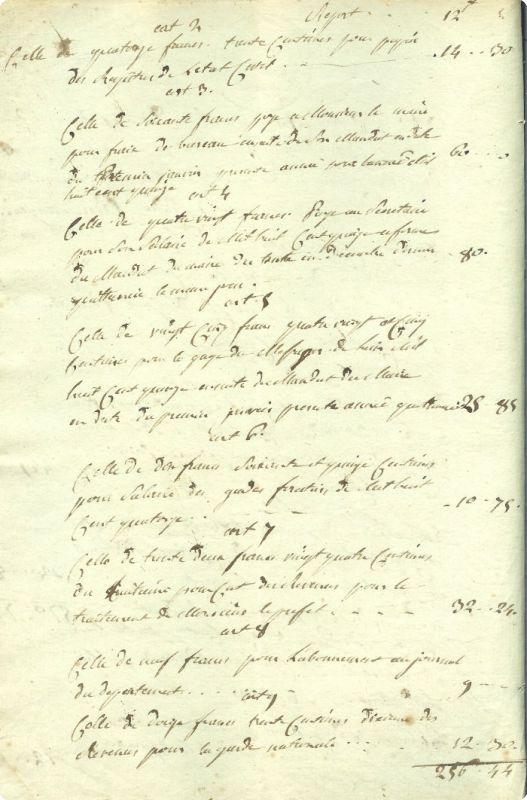 art 2 Report . . 12 #
Celle de quatorze francs trente Centimes pour papier 14 .. 30
des Registres de letat Civil . .
art 3.
Celle de Soixante francs paye a Monsieur le maire
pour frais de bureau ensuite de Son Mandat en date
du janvier presente année pour lannée Mil 60 . .
huit cent quinze
art 4
Celle de quatre vingt francs Paye au Secretaire
pour Son Salaire de Mil huit Cent quinze
du Mandat du maire du trente un décembre dernier 80.
quittancé le meme jour.
art 5
Celle de vingt Cinq francs quatre vingt et Cinq
Centimes pour le gage de de Mil
huit Cent quinze ensuite du Mandat du Maire
en date du premier janvier presente année quittancé 25 85
art 6.
Celle de Dix francs Soixante et quinze Centimes
pour Salaire des gardes forestiers de Mil huit
Cent quatorze . . 10 - 75.
art 7
Celle de trente deux francs vingt quatre Centimes
du Centieme pour Cent des Revenus pour le
traitement de Monsieur le prefet . . . . 32 .. 24
art 8
Celle de neuf francs pour labonnement au journal
du departement. . . . 9 -
art 9
Celle de douze francs trente Centimes des
Revenus pour la garde nationale . . . 12 .. 30.
256 . 44